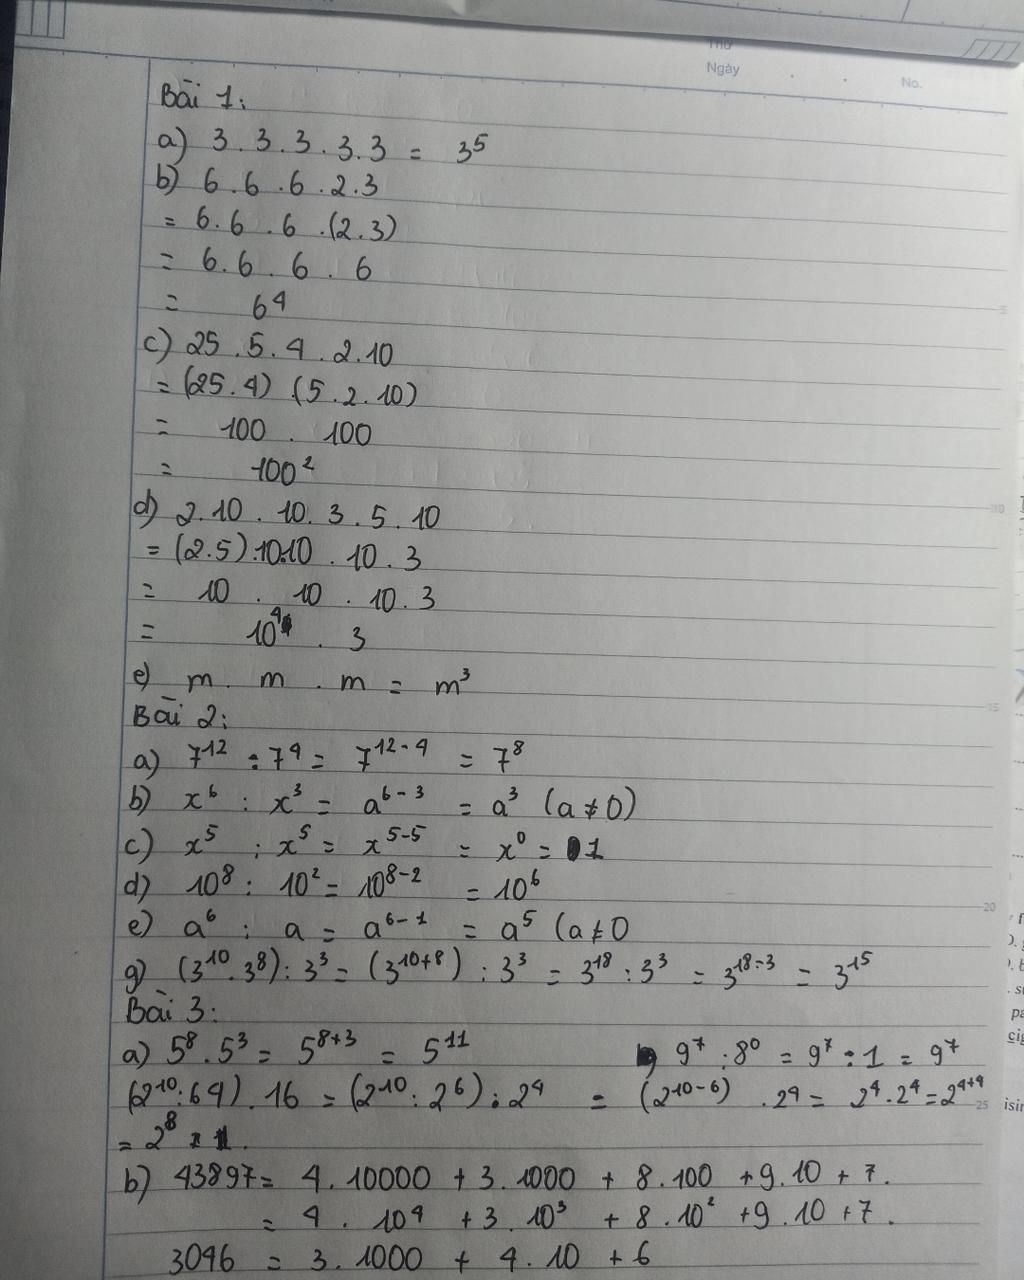 Thứ
Ngày No.
Bài 1:
a) 3 . 3 . 3 . 3 . 3 = 3⁵
b) 6 . 6 . 6 . 2 . 3
= 6 . 6 . 6 . (2 . 3)
= 6 . 6 . 6 . 6
= 6⁴
c) 25 . 5 . 4 . 2 . 10
= (25 . 4) (5 . 2 . 10)
= 100 . 100
= 100²
d) 2 . 10 . 10 . 3 . 5 . 10
= (2 . 5) . 10.10 . 10 . 3
= 10 . 10 . 10 . 3
= 10⁴ . 3
e) m . m . m = m³
Bài 2:
a) 7¹² : 7⁴ = 7¹²⁻⁴ = 7⁸
b) x⁶ : x³ = a⁶⁻³ = a³ (a ≠ 0)
c) x⁵ : x⁵ = x⁵⁻⁵ = x⁰ = 1
d) 10⁸ : 10² = 10⁸⁻² = 10⁶
e) a⁶ : a = a⁶⁻¹ = a⁵ (a ≠ 0
g) (3¹⁰ . 3⁸) : 3³ = (3¹⁰⁺⁸) : 3³ = 3¹⁸ : 3³ = 3¹⁸⁻³ = 3¹⁵
Bài 3:
a) 5⁸ . 5³ = 5⁸⁺³ = 5¹¹ 9⁷ : 8⁰ = 9⁷ : 1 = 9⁷
(2¹⁰ : 64) . 16 = (2¹⁰ : 2⁶) : 2⁴ = (2¹⁰⁻⁶) . 2⁴ = 2⁴ . 2⁴ = 2⁴⁺⁴
= 2⁸
b) 43897 = 4 . 10000 + 3 . 1000 + 8 . 100 + 9 . 10 + 7 .
= 4 . 10⁴ + 3 . 10³ + 8 . 10² + 9 . 10 + 7 .
3046 = 3 . 1000 + 4 . 10 + 6